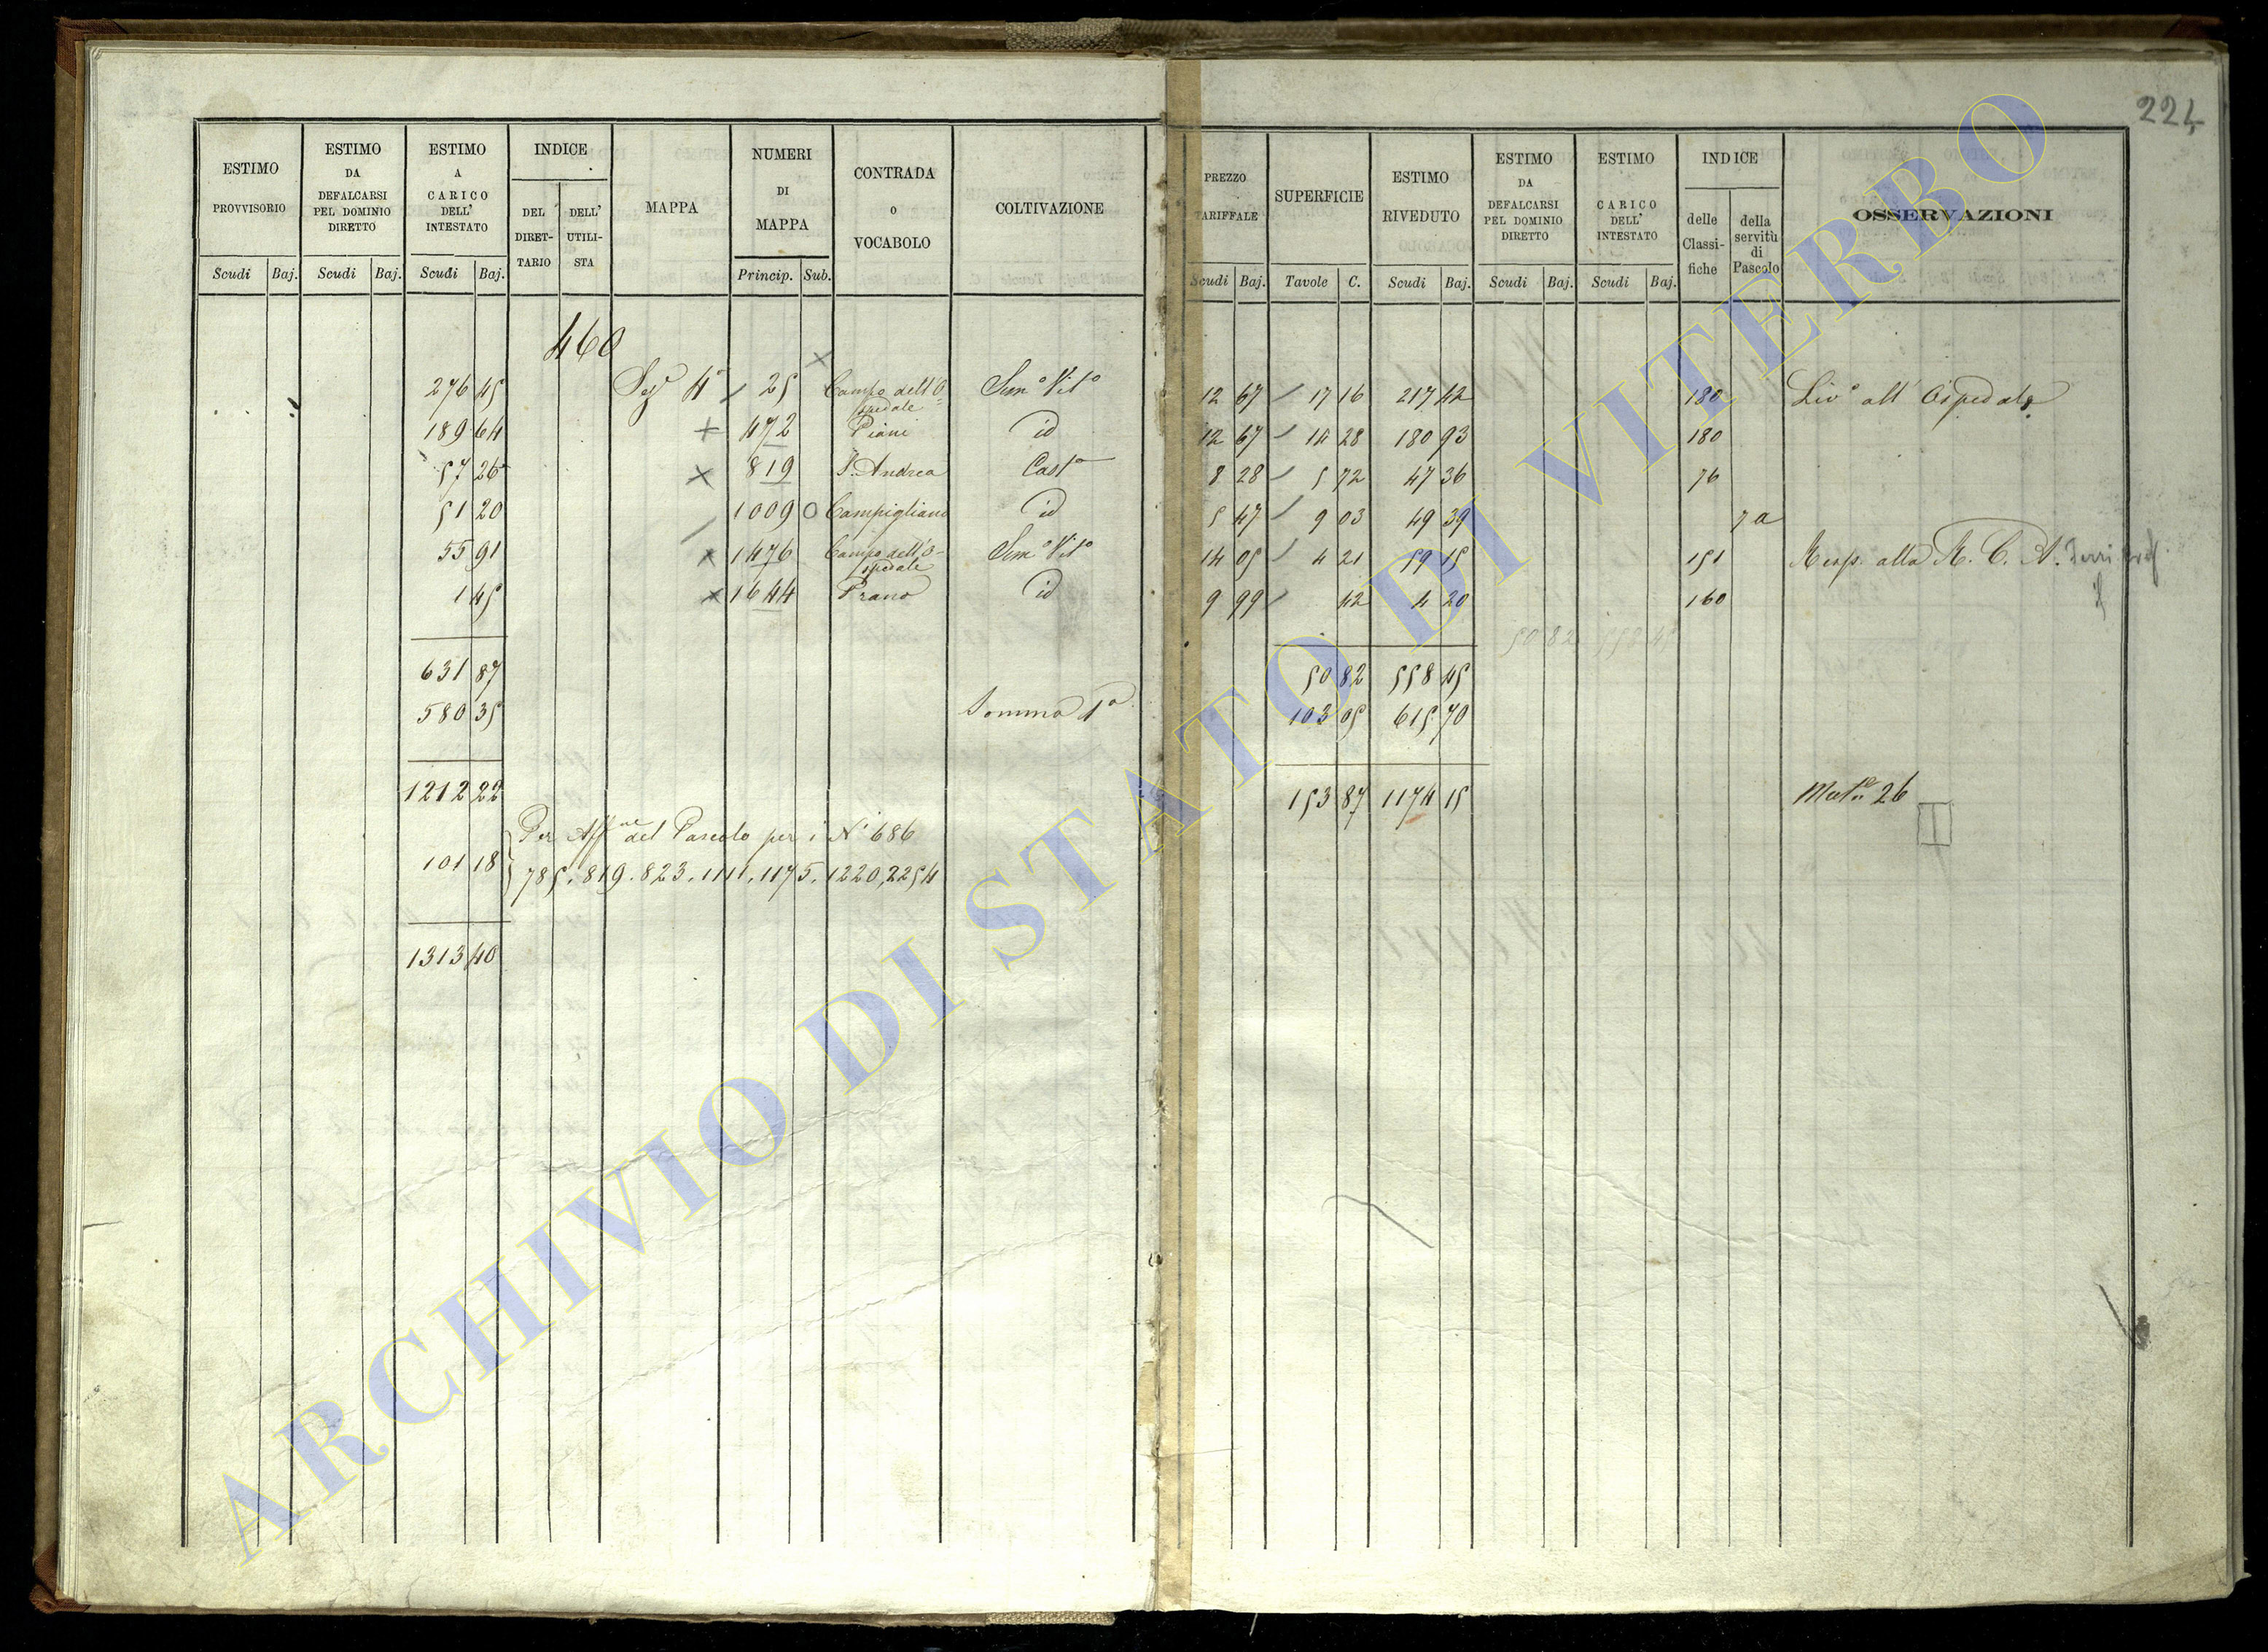 224
ESTIMO PROVVISORIO
ESTIMO DA DEFALCARSI PEL DOMINIO DIRETTO
ESTIMO A CARICO DELL' INTESTATO
INDICE
DEL DIRETTARIO
DELL' UTILISTA
MAPPA
NUMERI DI MAPPA
CONTRADA O VOCABOLO
COLTIVAZIONE
PREZZO TARIFFALE
SUPERFICIE
ESTIMO RIVEDUTO
ESTIMO DA DEFALCARSI PEL DOMINIO DIRETTO
ESTIMO A CARICO DELL' INTESTATO
INDICE
delle Classifiche
della servitù di Pascolo
OSSERVAZIONI
Scudi Baj. Scudi Baj. Scudi Baj. Princip. Sub. Scudi Baj. Tavole C. Scudi Baj. Scudi Baj. Scudi Baj.
460
276 45 25 Campo dell'O= Sem° Vit° 12 67 17 16 217 42 180 Liv° all' Ospedale
spedale
189 64 472 Piani id 12 67 14 28 180 93 180
57 26 819 S. Andrea Cast° 8 28 5 72 47 36 76
51 20 1009 Campigliano id 5 47 9 03 49 39 7a
55 91 1476 Campo dell'O- Sem° Vit° 14 05 4 21 59 15 151 Resp. alla R. C. A.
spedale
1 45 1644 Prano id 9 99 42 4 20 160
50 82 558 45
631 87 50 82 558 45
580 35 Somma 1a 103 05 615 70
1212 22 153 87 1174 15 26
Per Aff.ne del Pascolo per i N' 686
101 18 785. 819. 823. 1111. 1175. 1220, 2254
1313 40
ARCHIVIO DI STATO DI VITERBO